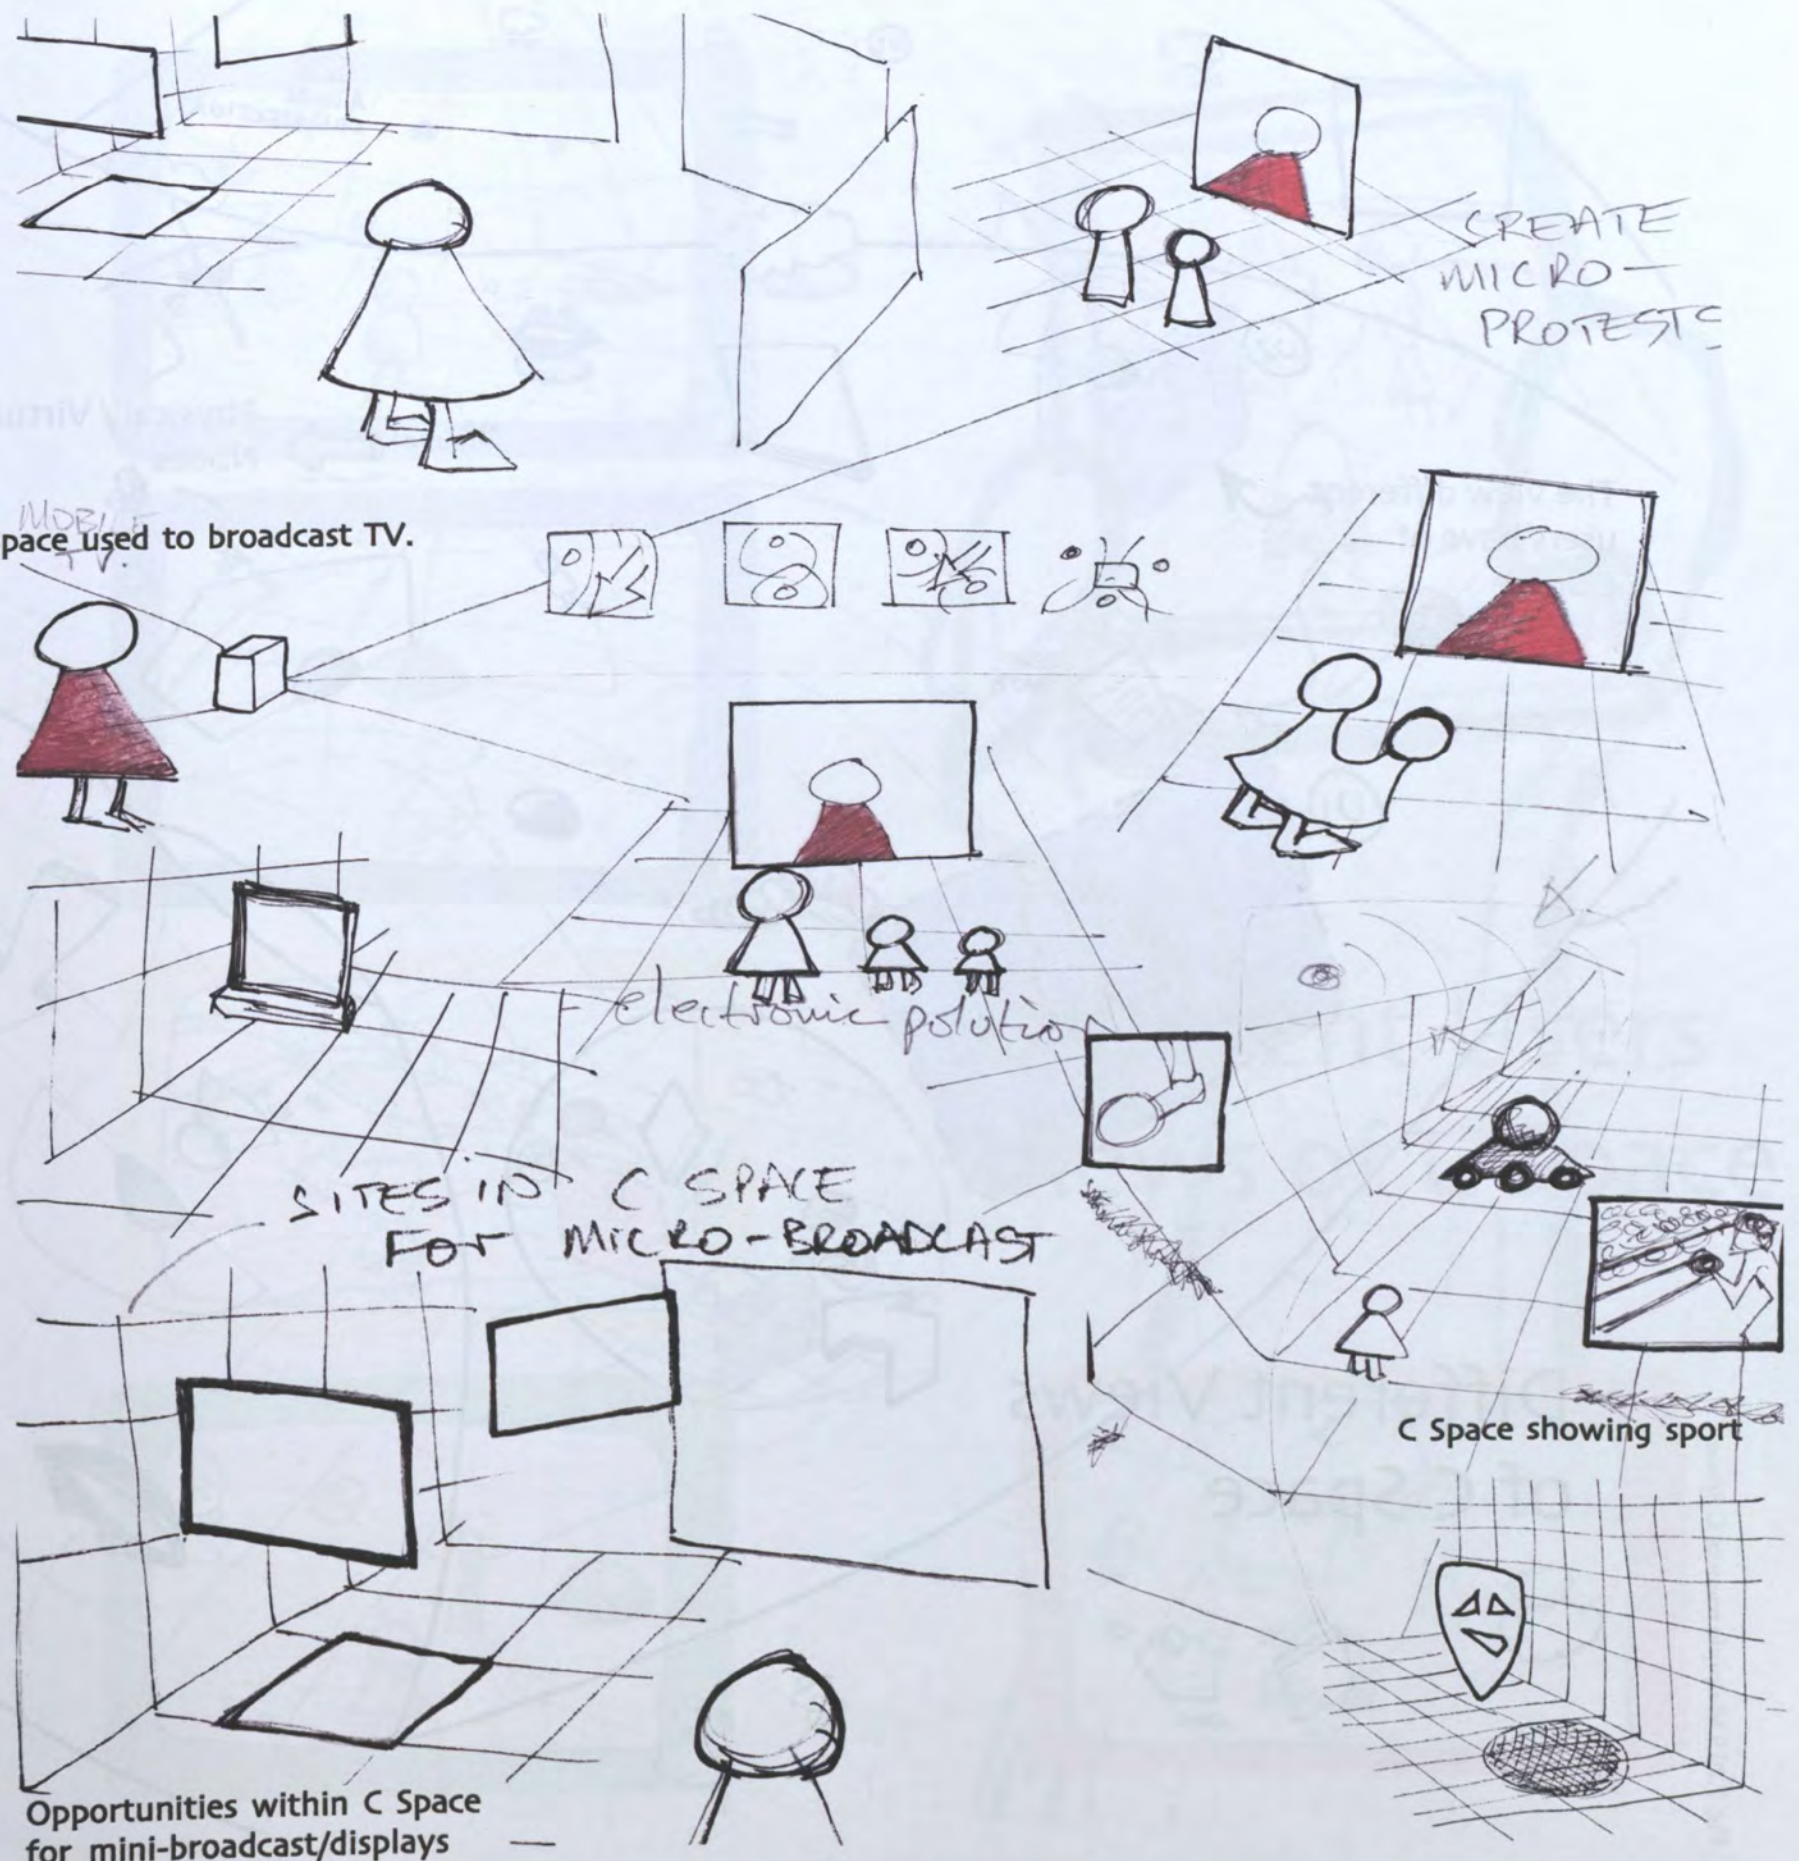 CREATE
MICRO-
PROTESTS
MOBILE
TV.
pace used to broadcast TV.
electronic polutio
SITES IN C SPACE
FOR MICRO-BROADCAST
C Space showing sport
Opportunities within C Space
for mini-broadcast/displays
Different Views
of C Space